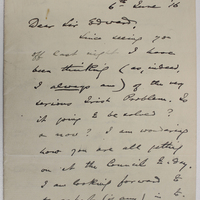 6th June '16
Dear Sir Edward,
Since seeing you
off last night I have
been thinking (as, indeed,
I always am) of the very
serious Irish Problem. Is
it going to be solved?
or now? I am wondering
how you are all getting
on at the Council to-day.
I am looking forward to